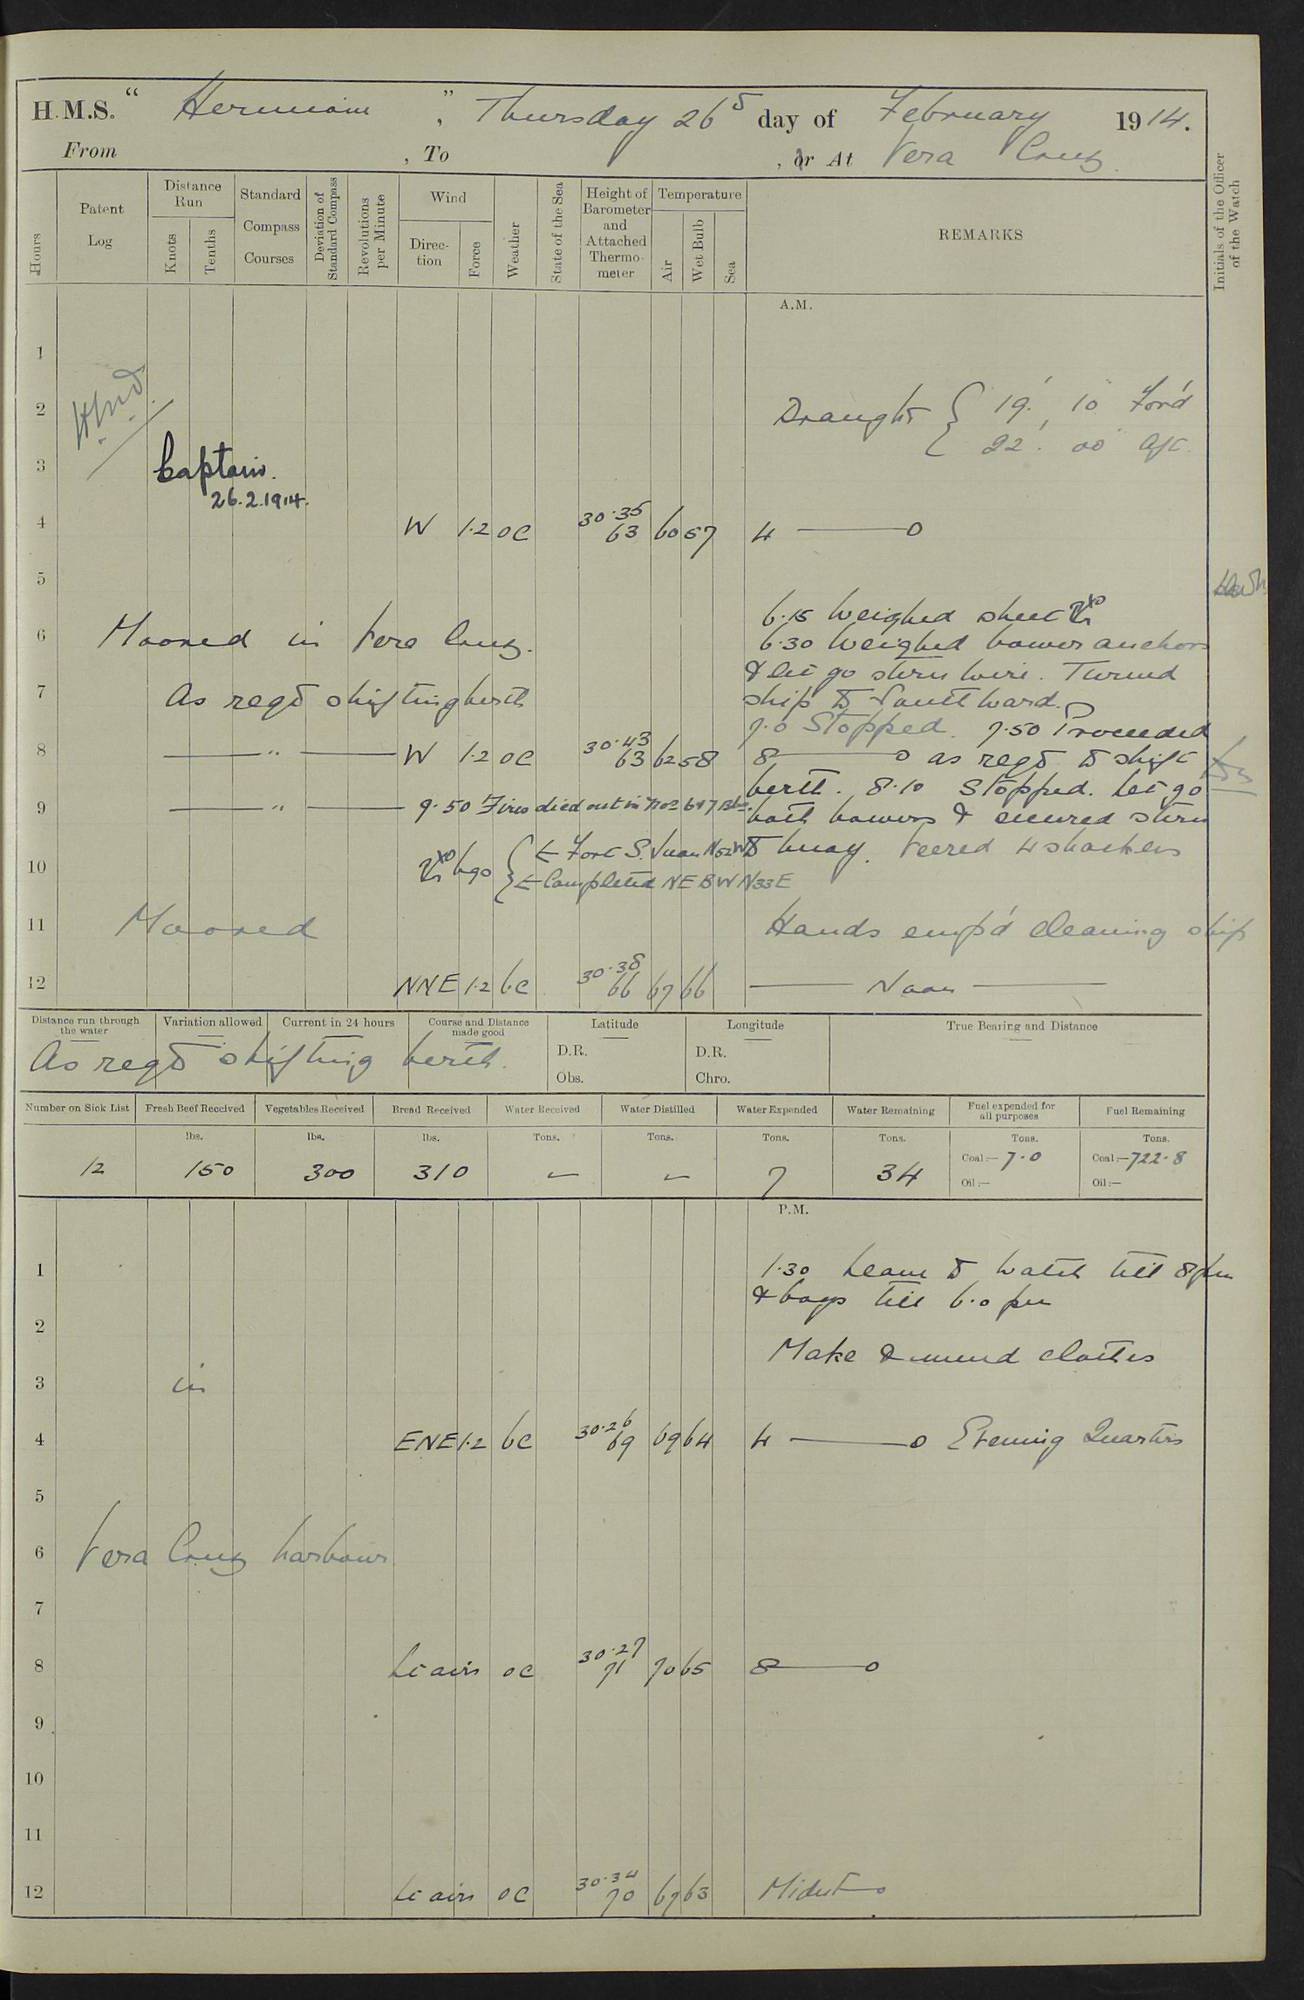 H.M.S. " Hermione ", Thursday 26th day of February 1914.
From , To , or At Vera Cruz.
Hours
Patent Log
Distance Run
Knots
Tenths
Standard Compass Courses
Deviation of Standard Compass
Revolutions per Minute
Wind
Direction
Force
Weather
State of the Sea
Height of Barometer and Attached Thermometer
Temperature
Air
Wet Bulb
Sea
REMARKS
Initials of the Officer of the Watch
A.M.
1
2 Draught { 19' 10" For'd
22' 00" Aft
3 Captain.
26.2.1914.
4 W 1.2 oc 30.35 63 60 57 4 ——o
5
6.15 Weighed sheet
6 Moored in Vera Cruz. 6.30 Weighed bower anchors
& let go stern wire. Turned
7 As reqd shifting berth ship to Southward.
7.0 Stopped. 7.50 Proceeded
8 —— " —— W 1.2 oc 30.43 63 62 58 8 ——o as reqd to shift
berth. 8.10 Stopped. Let go
9 —— " —— 9.50 Fires died out in Nos 6 & 7 Blrs. both bowers & secured stern
{ Fort S. Juan N52W to buoy. Veered 4 shackles
10 Completed NEBW N33E
11 Moored Hands emp'd cleaning ship
12 NNE 1.2 bc 30.38 66 67 66 —— Noon ——
Distance run through the water
Variation allowed
Current in 24 hours
Course and Distance made good
Latitude
D.R.
Obs.
Longitude
D.R.
Chro.
True Bearing and Distance
As reqd shifting berth.
Number on Sick List
Fresh Beef Received
Vegetables Received
Bread Received
Water Received
Water Distilled
Water Expended
Water Remaining
Fuel expended for all purposes
Fuel Remaining
lbs. lbs. lbs. Tons. Tons. Tons. Tons. Tons. Tons.
12 150 300 310 – – 7 34 Coal:— 7.0 Coal:— 722.8
Oil:— Oil:—
P.M.
1 1.30 Leave to watch till 8 pm
& boys till 6.0 pm
2
Make & mend clothes
3 in
4 ENE 1.2 bc 30.26 69 69 64 4 ——o Evening Quarters
5
6 Vera Cruz harbour
7
8 Lt airs oc 30.27 71 70 65 8 ——o
9
10
11
12 Lt airs oc 30.34 70 67 63 Midnt —o